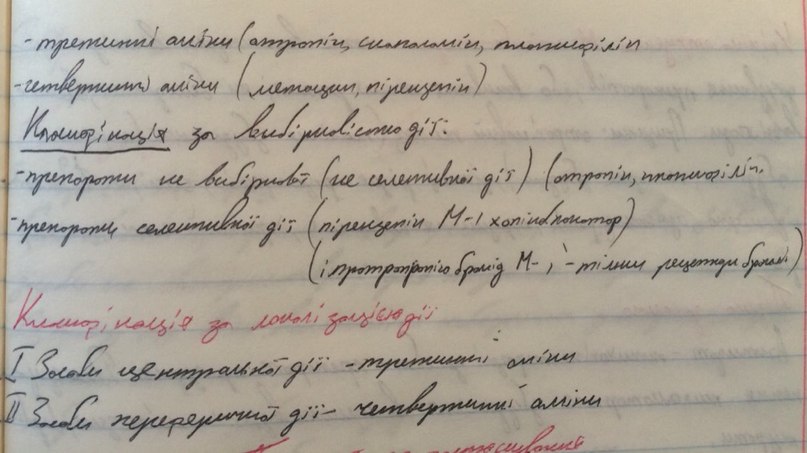 - третинні аміни (атропін, скополамін, платифілін
- четвертинні аміни (метацин, пірензепін)
Класифікація за вибірковістю дії:
- препарати не вибіркові (не селективної дії) (атропін, платифілін.
- препарати селективної дії (пірензепін М-1 холіноблокатор)
(іпротропію бромід М-, - тільки рецептори бронхів)
Класифікація за локалізацією дії
I Засоби центральної дії - третинні аміни
II Засоби переферичної дії - четвертинні аміни